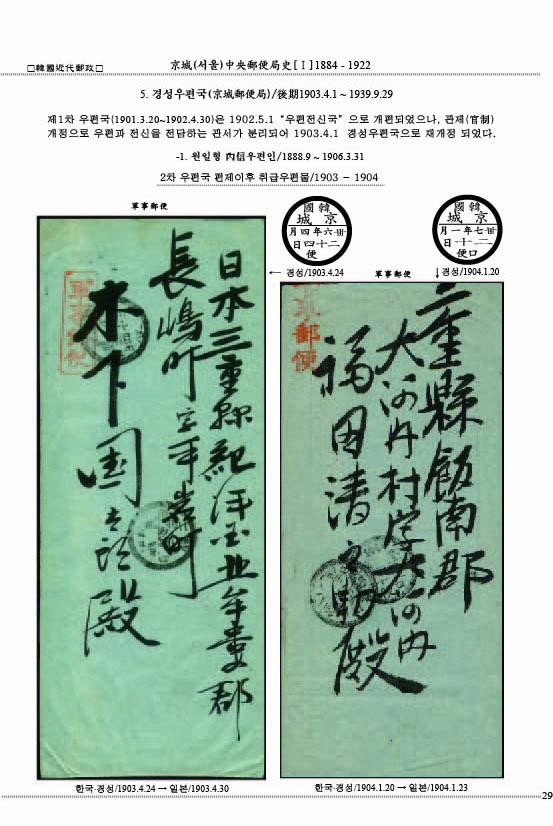 □韓國近代郵政□
京城(서울)中央郵便局史[Ⅰ]1884 - 1922
5. 경성우편국(京城郵便局)/後期1903.4.1 ~ 1939.9.29
제1차 우편국(1901.3.20~1902.4.30)은 1902.5.1 “우편전신국” 으로 개편되었으나, 관제(官制)
개정으로 우편과 전신을 전담하는 관서가 분리되어 1903.4.1 경성우편국으로 재개정 되었다.
-1. 원일형 內信우편인/1888.9 ~ 1906.3.31
2차 우편국 편제이후 취급우편물/1903 - 1904
軍事郵便
韓國
京城
卅六年四月
二十四日
便
← 경성/1903.4.24
韓國
京城
卅七年一月
二十日
口便
↓경성/1904.1.20
軍事郵便
日本三重縣紀伊國北牟婁郡
長嶋町
木下國太郎殿
軍事郵便
三重縣飯南郡
大河内村字大河内
福田清之助殿
軍事郵便
한국·경성/1903.4.24 → 일본/1903.4.30
한국·경성/1904.1.20 → 일본/1904.1.23
29